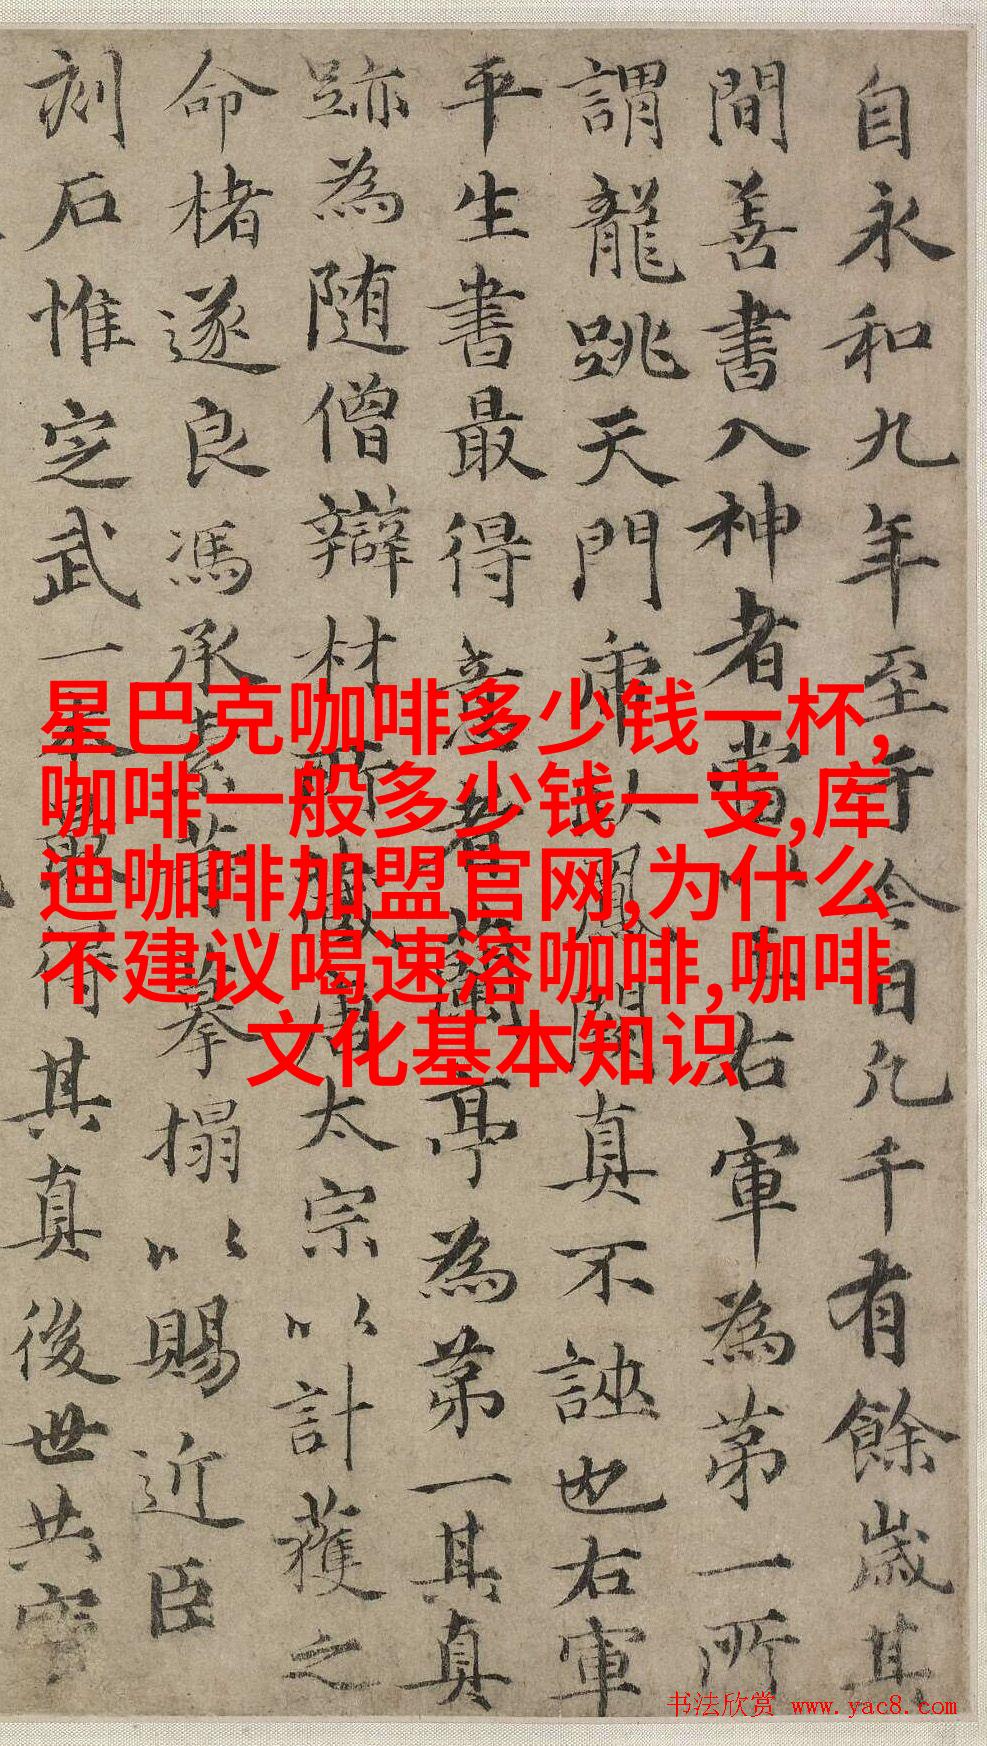 自永和九年至于今日凡千有餘歲其
間善書入神者當以右軍為第一所
謂龍跳天門虎臥鳳閣真不誣也右軍
平生書最得意者蘭亭為第一其真
跡為随僧辯材所藏唐太宗以計獲之
命楮遂良馮承素
搨以賜近臣
刻石惟定武一本
得其真後世共寳
星巴克咖啡多少钱一杯,
咖啡一般多少钱一支,库
迪咖啡加盟官网,为什么
不建议喝速溶咖啡,咖啡
文化基本知识
书法欣赏 www.yac8.com